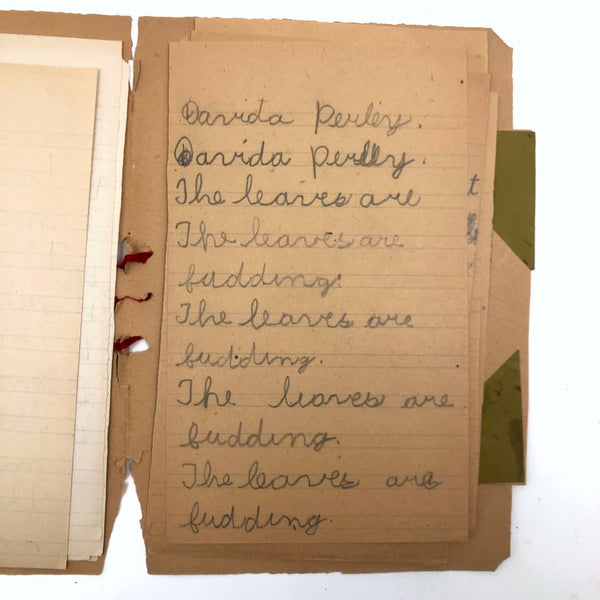 Davida Perley.
Davida Perlly.
The leaves are
The leaves are
budding.
The leaves are
budding.
The leaves are
budding.
The leaves are
budding.
t